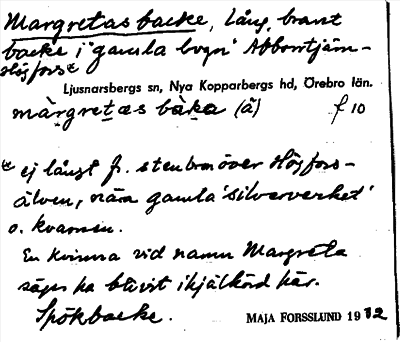 Margretas backe, Lång, brant
backe i 'gamla vägen' Abborrtjärn-
Högfors*
Ljusnarsbergs sn, Nya Kopparbergs hd, Örebro län.
màrgretas bàka (á) f 10
* ej långt fr. stenbron över Högfors-
älven, nära gamla 'silververket'
o. kvarnen.
En kvinna vid namn Margreta
säges ha blivit ihjälkörd här.
Spökbacke.
MAJA FORSSLUND 1912